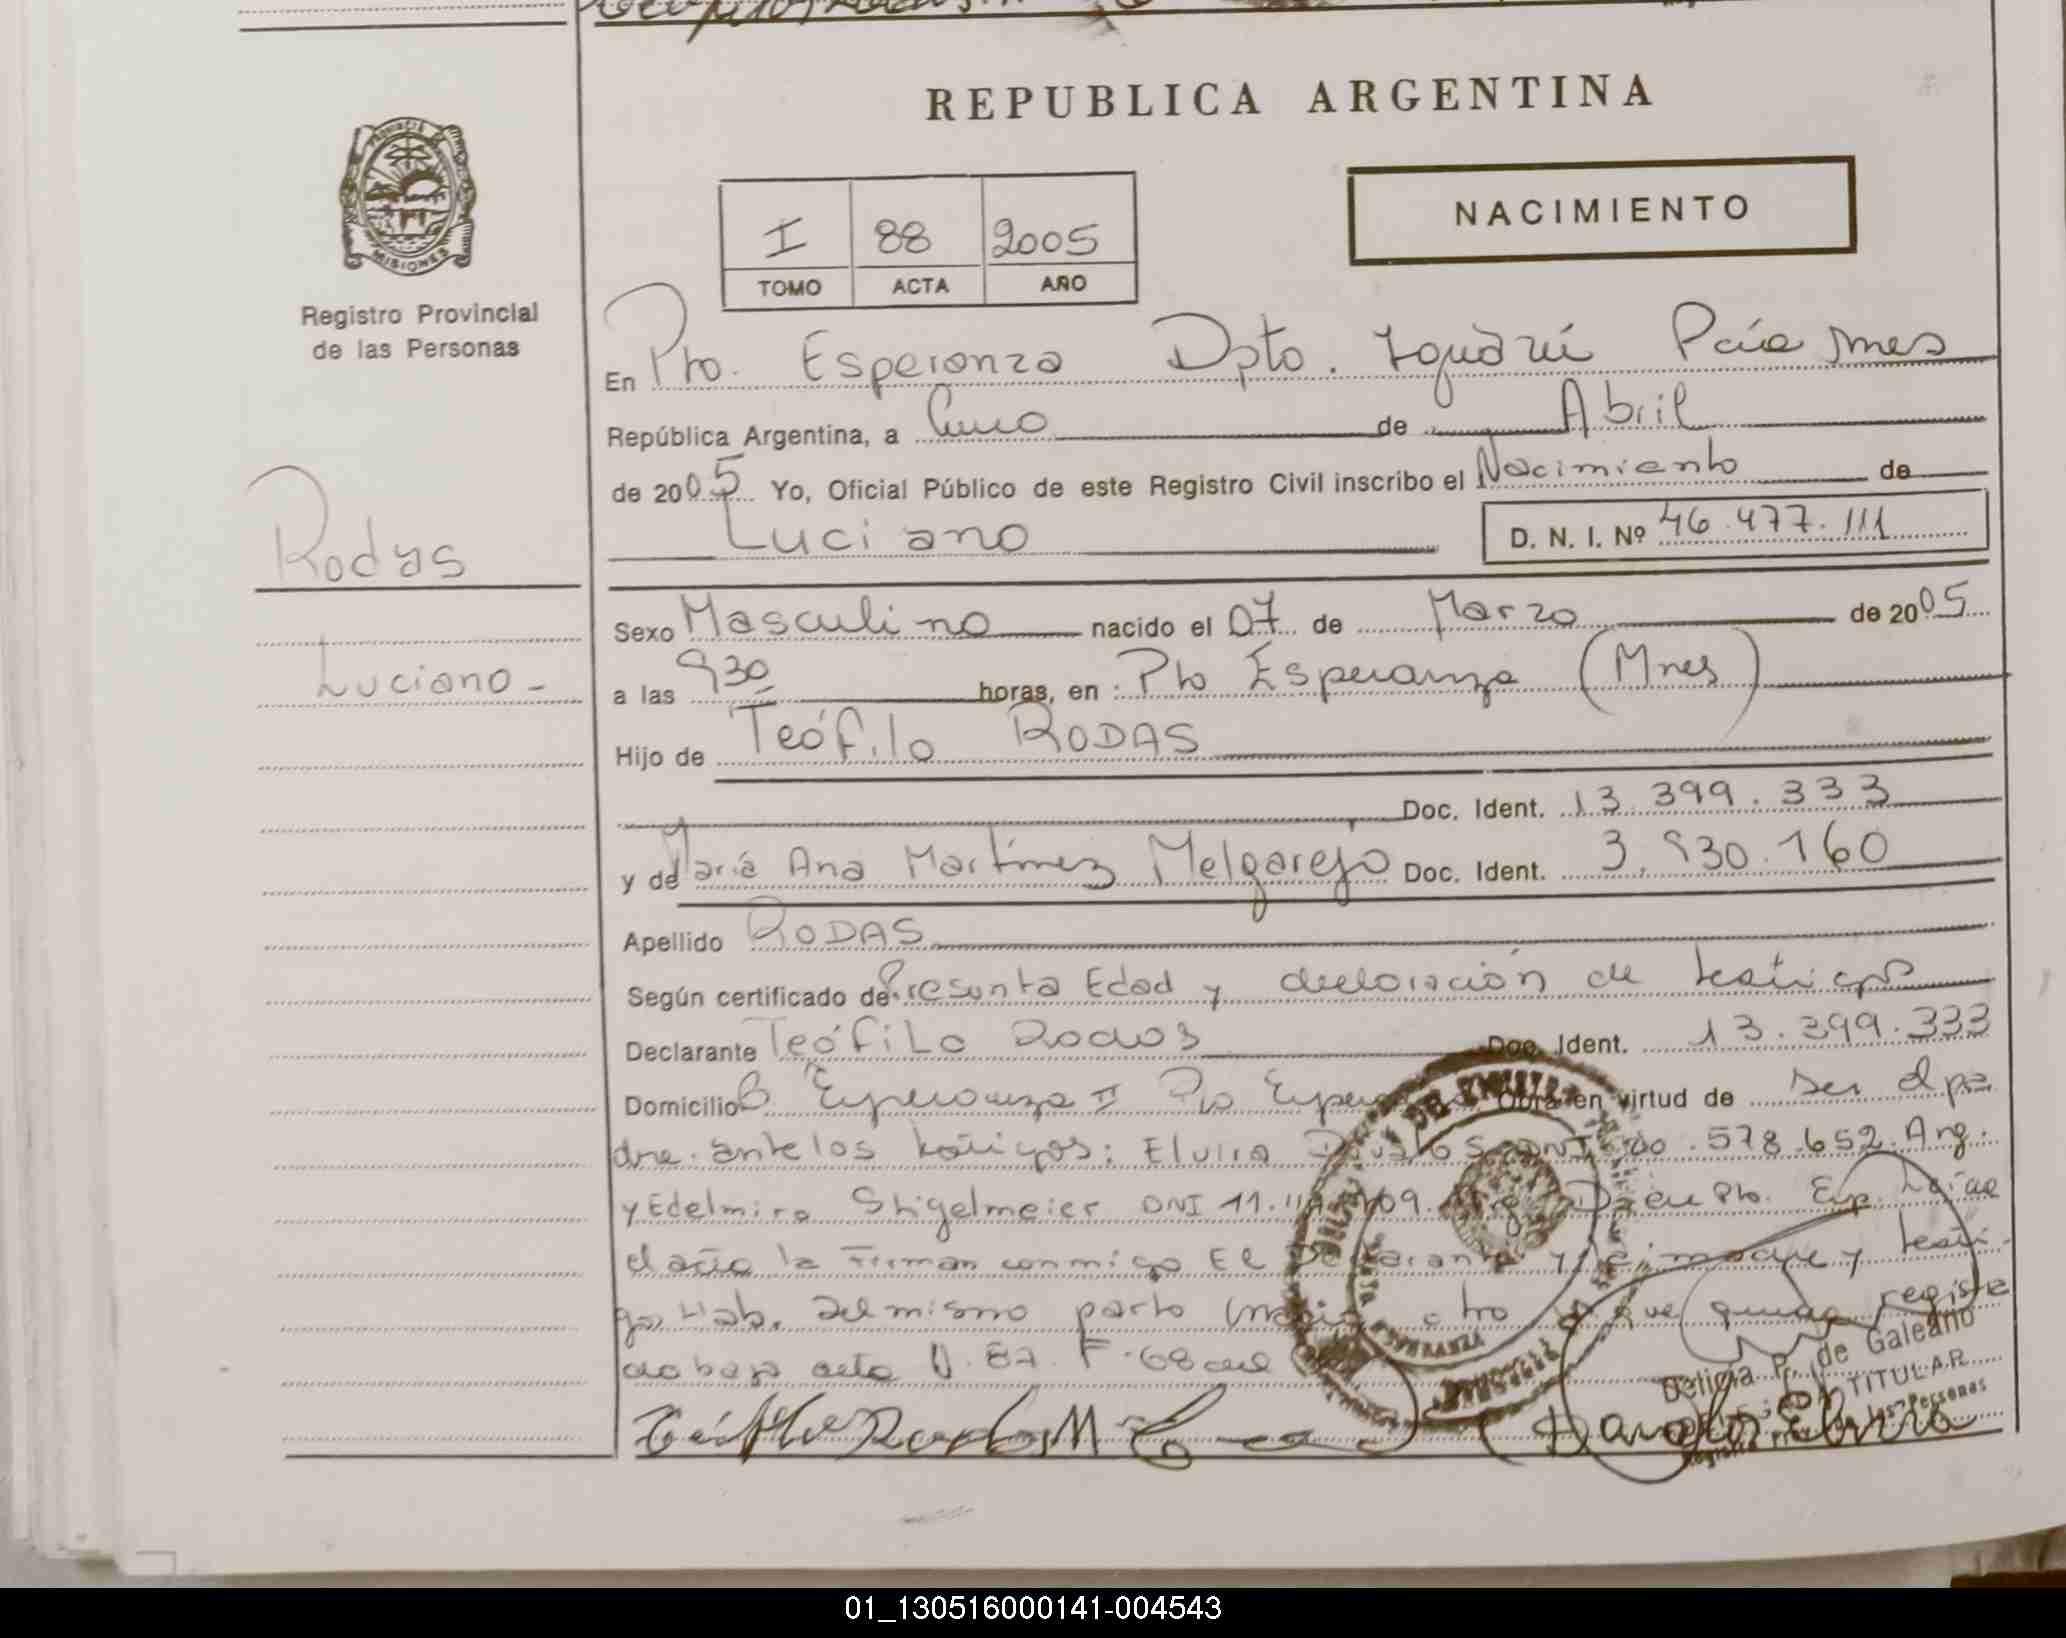 REPUBLICA ARGENTINA
NACIMIENTO
I 88 2005
TOMO ACTA AÑO
PROVINCIA DE
MISIONES
Registro Provincial
de las Personas
En Pto. Esperanza Dpto. Iguazú Pcia Mnes
República Argentina, a Cinco de Abril
de 2005 Yo, Oficial Público de este Registro Civil inscribo el Nacimiento de
Luciano D. N. I. Nº 46.477.111
Rodas
Luciano-
Sexo Masculino nacido el 07 de Marzo de 2005
a las 930 horas, en: Pto Esperanza (Mnes)
Hijo de Teófilo RODAS
Doc. Ident. 13.399.333
y de María Ana Martínez Melgarejo Doc. Ident. 3.930.160
Apellido RODAS
Según certificado de Presunta Edad y declaración de testigos
Declarante Teófilo Rodas Doc. Ident. 13.399.333
Domicilio B Esperanza II Pto Obra en virtud de ser el pa
dre. ante los testigos: Elvira DNI 578.652. Arg.
y Edelmira Stigelmeier DNI 11. en Pto. Esp. Leída
el acta la Firman conmigo El Declarante y testi-
gos Hab. del mismo parto otro que registra
do bajo acta N. 87. F. 68
Delicia P. de Galeano
TITULAR
de las Personas
01_130516000141-004543